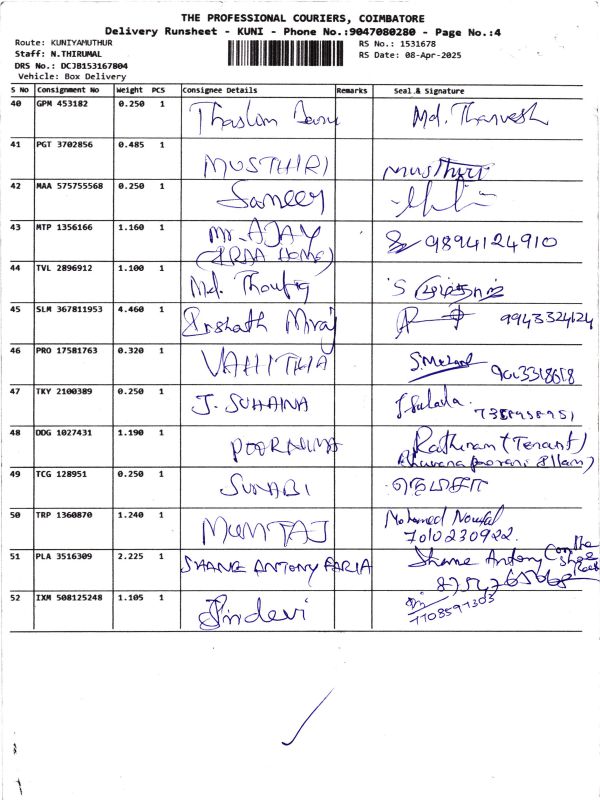 THE PROFESSIONAL COURIERS, COIMBATORE
Delivery Runsheet - KUNI - Phone No.:9047080280 - Page No.:4
Route: KUNIYAMUTHUR
RS No.: 1531678
Staff: N.THIRUMAL
RS Date: 08-Apr-2025
DRS No.: DCJB153167804
Vehicle: Box Delivery
S No Consignment No Weight PCS Consignee Details Remarks Seal & Signature
40 GPM 453182 0.250 1 Thaslim Md. Thanvesh
41 PGT 3702856 0.485 1 MUSTHIRI
42 MAA 575755568 0.250 1 Sameer
43 MTP 1356166 1.160 1 Mr. AJAY 9894124910
(IRAA Home)
44 TVL 2896912 1.100 1 Md. Thoufiq S
45 SLM 367811953 4.460 1 Irshath Miraj 9943324124
46 PRO 17581763 0.320 1 VAHITHA
47 TKY 2100389 0.250 1 J. SUHAINA
48 DDG 1027431 1.190 1 POORNIMA Rathinam (Tenant)
49 TCG 128951 0.250 1 SUNABI
50 TRP 1360870 1.240 1 MUMTAJ Mohamed Noufal
7010230922.
51 PLA 3516309 2.225 1 SHANE ANTONY FARIA Shane Antony (on the
52 IXM 508125248 1.105 1 Sindevi
7708597303